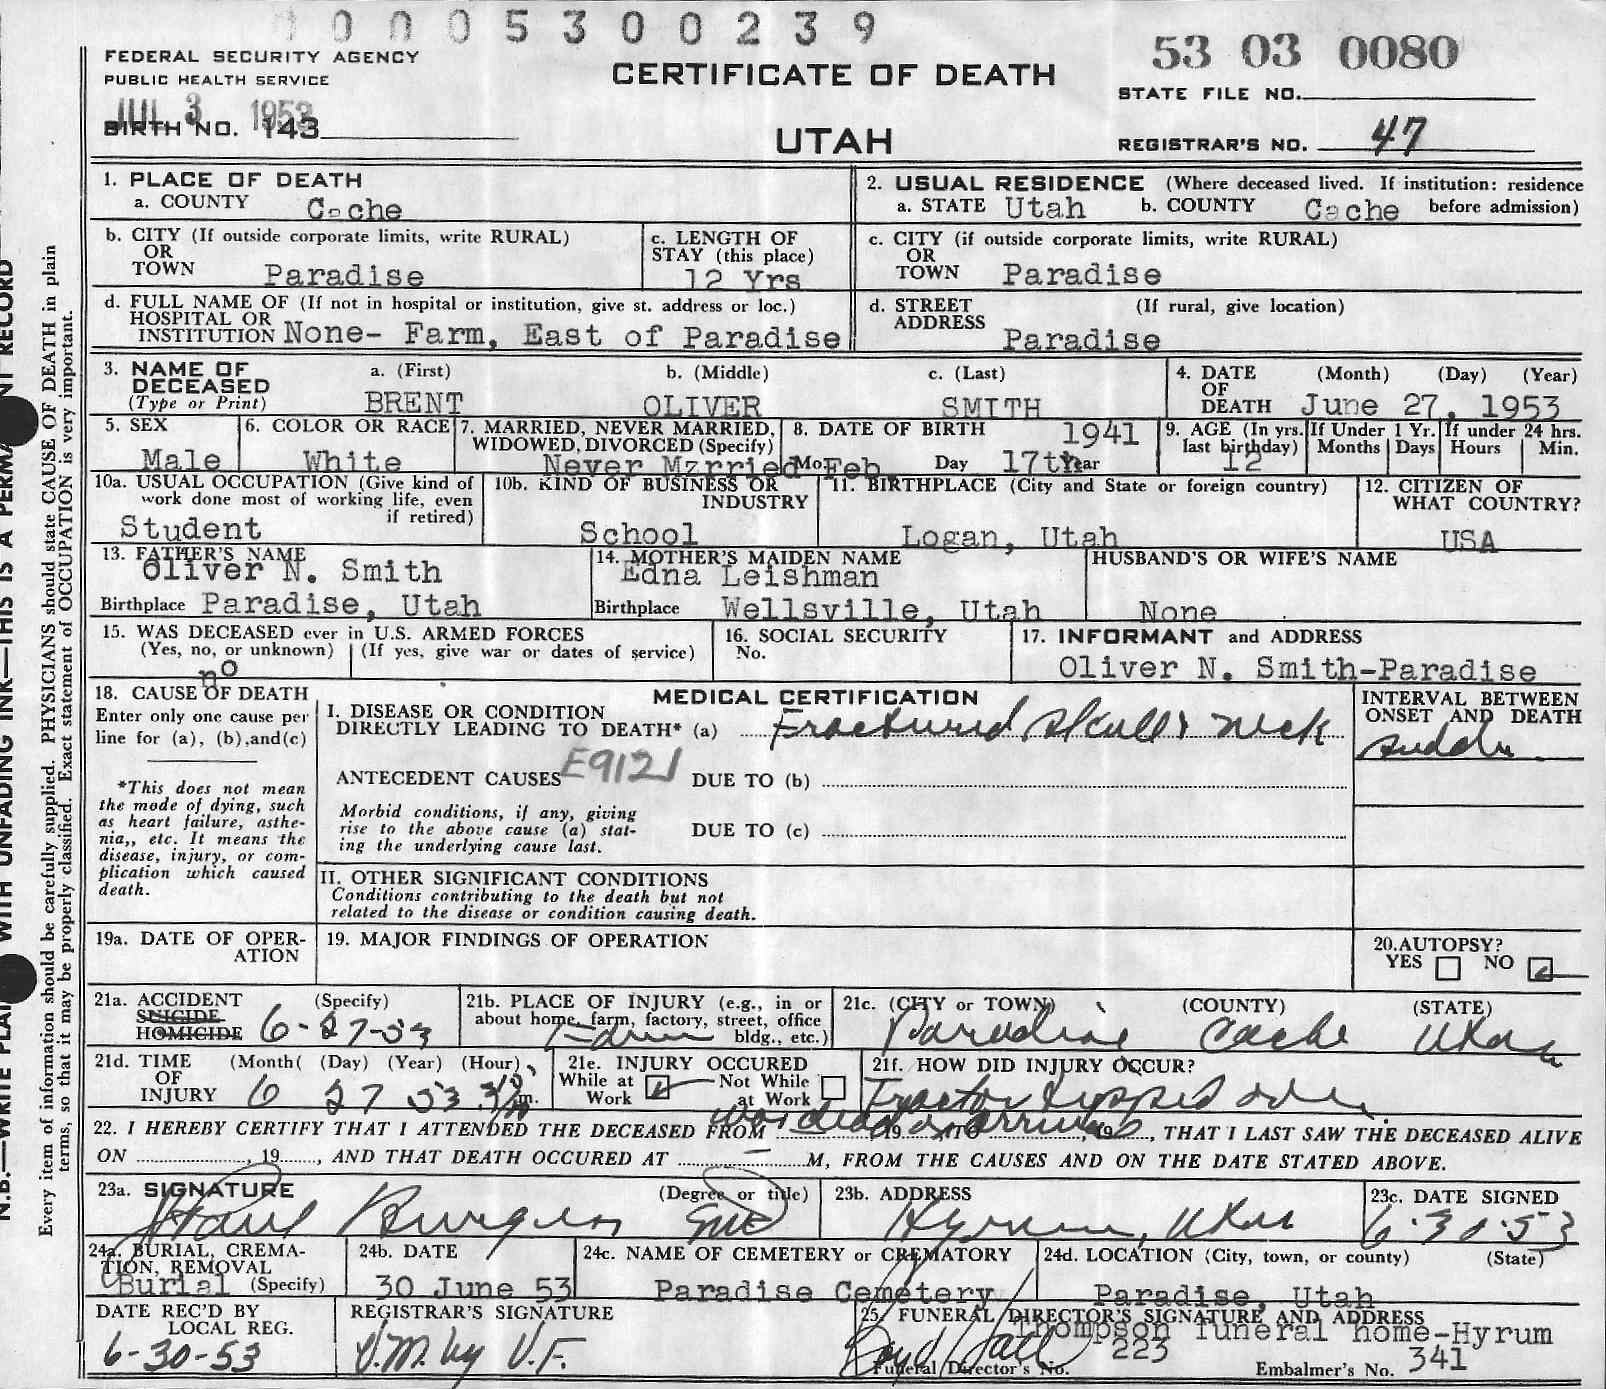 0 0 0 5 3 0 0 2 3 9
FEDERAL SECURITY AGENCY
PUBLIC HEALTH SERVICE
JUL 3 1953
BIRTH NO. 143
CERTIFICATE OF DEATH
UTAH
53 03 0080
STATE FILE NO.
REGISTRAR'S NO. 47
1. PLACE OF DEATH
a. COUNTY Cache
2. USUAL RESIDENCE (Where deceased lived. If institution: residence
a. STATE Utah b. COUNTY Cache before admission)
b. CITY (If outside corporate limits, write RURAL)
OR
TOWN Paradise
c. LENGTH OF
STAY (this place)
12 Yrs
c. CITY (if outside corporate limits, write RURAL)
OR
TOWN Paradise
d. FULL NAME OF (If not in hospital or institution, give st. address or loc.)
HOSPITAL OR
INSTITUTION None- Farm, East of Paradise
d. STREET (If rural, give location)
ADDRESS Paradise
3. NAME OF
DECEASED
(Type or Print)
a. (First) b. (Middle) c. (Last)
BRENT OLIVER SMITH
4. DATE (Month) (Day) (Year)
OF
DEATH June 27, 1953
5. SEX
Male
6. COLOR OR RACE
White
7. MARRIED, NEVER MARRIED,
WIDOWED, DIVORCED (Specify)
Never Mzrried
8. DATE OF BIRTH 1941
Mo Feb Day 17th Year
9. AGE (In yrs.
last birthday)
12
If Under 1 Yr.
Months Days
If under 24 hrs.
Hours Min.
10a. USUAL OCCUPATION (Give kind of
work done most of working life, even
if retired)
Student
10b. KIND OF BUSINESS OR
INDUSTRY
School
11. BIRTHPLACE (City and State or foreign country)
Logan, Utah
12. CITIZEN OF
WHAT COUNTRY?
USA
13. FATHER'S NAME
Oliver N. Smith
Birthplace Paradise, Utah
14. MOTHER'S MAIDEN NAME
Edna Leishman
Birthplace Wellsville, Utah
HUSBAND'S OR WIFE'S NAME
None
15. WAS DECEASED ever in U.S. ARMED FORCES
(Yes, no, or unknown) (If yes, give war or dates of service)
no
16. SOCIAL SECURITY
No.
17. INFORMANT and ADDRESS
Oliver N. Smith-Paradise
18. CAUSE OF DEATH
Enter only one cause per
line for (a), (b),and(c)
*This does not mean
the mode of dying, such
as heart failure, asthe-
nia,, etc. It means the
disease, injury, or com-
plication which caused
death.
MEDICAL CERTIFICATION
I. DISEASE OR CONDITION
DIRECTLY LEADING TO DEATH* (a) Fractured skull & neck
ANTECEDENT CAUSES E9121 DUE TO (b)
Morbid conditions, if any, giving
rise to the above cause (a) stat-
ing the underlying cause last.
DUE TO (c)
INTERVAL BETWEEN
ONSET AND DEATH
sudden
II. OTHER SIGNIFICANT CONDITIONS
Conditions contributing to the death but not
related to the disease or condition causing death.
19a. DATE OF OPER-
ATION
19. MAJOR FINDINGS OF OPERATION
20.AUTOPSY?
YES NO
21a. ACCIDENT (Specify)
SUICIDE
HOMICIDE 6-27-53
21b. PLACE OF INJURY (e.g., in or
about home, farm, factory, street, office
bldg., etc.)
Farm
21c. (CITY or TOWN) (COUNTY) (STATE)
Paradise Cache Utah
21d. TIME (Month( (Day) (Year) (Hour)
OF
INJURY 6 27 53 m.
21e. INJURY OCCURED
While at Work Not While at Work
21f. HOW DID INJURY OCCUR?
Tractor tipped over
was dead on arrival
22. I HEREBY CERTIFY THAT I ATTENDED THE DECEASED FROM 19 TO , 19 , THAT I LAST SAW THE DECEASED ALIVE
ON , 19 , AND THAT DEATH OCCURED AT M, FROM THE CAUSES AND ON THE DATE STATED ABOVE.
23a. SIGNATURE (Degree or title)
Burgess
23b. ADDRESS
Hyrum, Utah
23c. DATE SIGNED
6-30-53
24a. BURIAL, CREMA-
TION, REMOVAL
Burial (Specify)
24b. DATE
30 June 53
24c. NAME OF CEMETERY or CREMATORY
Paradise Cemetery
24d. LOCATION (City, town, or county) (State)
Paradise, Utah
DATE REC'D BY
LOCAL REG.
6-30-53
REGISTRAR'S SIGNATURE
V.M. by V.F.
25. FUNERAL DIRECTOR'S SIGNATURE AND ADDRESS
Thompson funeral home-Hyrum
Boyd Hall
Funeral Director's No. 223
Embalmer's No. 341
Every item of information should be carefully supplied. PHYSICIANS should state CAUSE OF DEATH in plain
terms, so that it may be properly classified. Exact statement of OCCUPATION is very important.